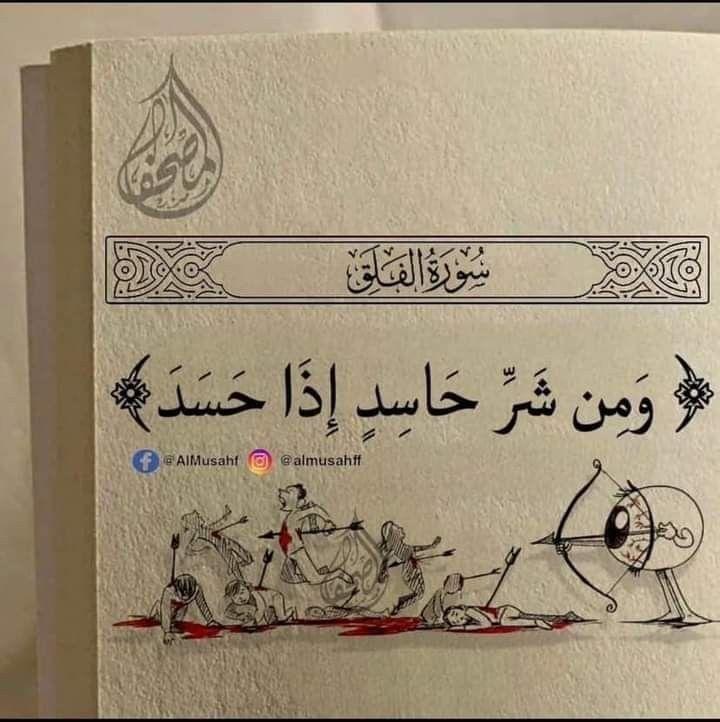 المصحف
سُورَةُ الفَلَقِ
﴿ وَمِن شَرِّ حَاسِدٍ إِذَا حَسَدَ ﴾
@AlMusahf @almusahff
المصحف